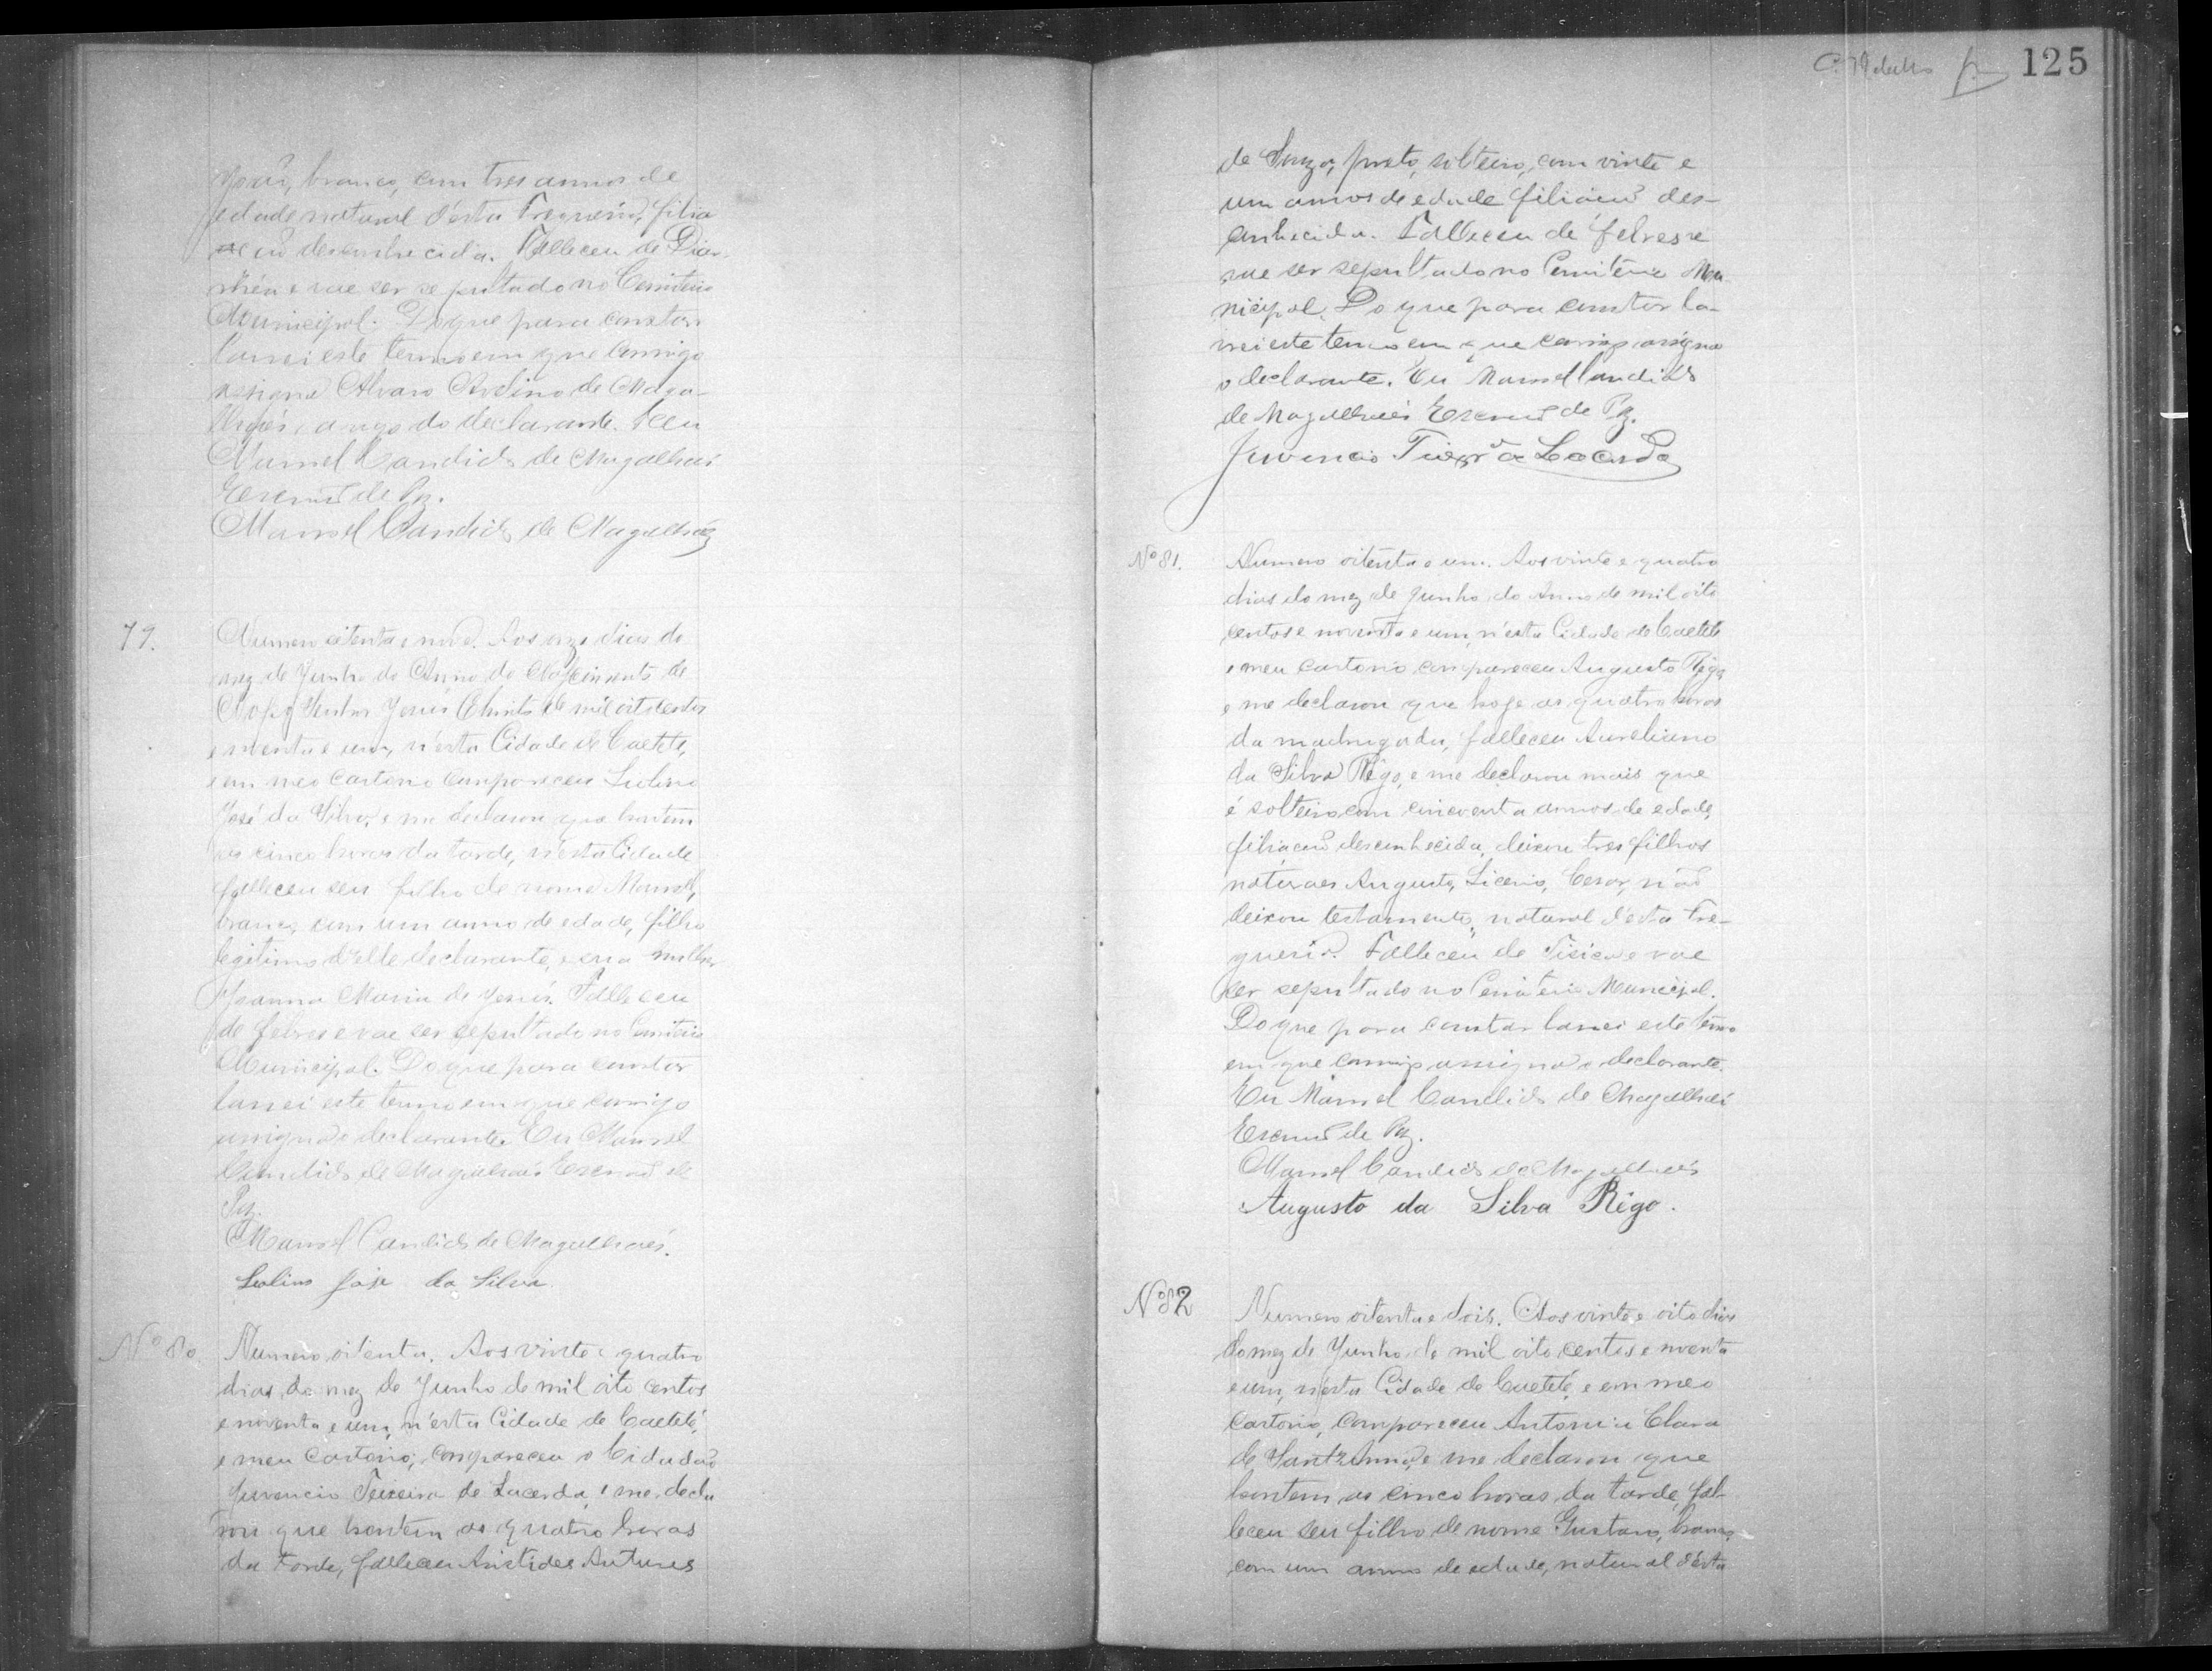 João, branco, com tres annos de
edade natural d'esta Freguesia, filia
ção desconhecida. Falleceu de Diar-
rhéa e vae ser sepultado no Cemiterio
Municipal. Do que para constar
lavrei este termo em que commigo
assigna Alvaro Avelino de Maga-
lhães, a rogo do declarante. Eu
Manoel Candido de Magalhães
Escrivão de Paz.
Manoel Candido de Magalhães
79.
Numero setenta e nove. Aos onze dias do
mez de Junho do Anno do Nascimento de
Nosso Senhor Jesus Christo de mil oitocentos
e noventa e um, n'esta Cidade de Caeteté,
e em meo Cartorio compareceu
José da Silva, e me declarou que hontem
as cinco horas da tarde, n'esta Cidade
falleceu seu filho de nome Manoel,
branco, com um anno de edade, filho
legitimo d'elle declarante, e sua mulher
Joanna Maria de Jesus. Falleceu
de febres e vae ser sepultado no Cemiterio
Municipal. Do que para constar
lavrei este termo em que commigo
assigna o declarante. Eu Manoel
Candido de Magalhães Escrivão de
Paz.
Manoel Candido de Magalhães.
José da Silva
Nº 80
Numero oitenta. Aos vinte e quatro
dias do mez de Junho de mil oito centos
e noventa e um, n'esta Cidade de Caeteté,
e meu Cartorio, compareceu o Cidadão
Juvencio Teixeira de Lacerda, e me decla
rou que hontem as quatro horas
da tarde, falleceu Aristides Antunes
125
de Souza, preto, solteiro, com vinte e
um annos de edade filiação des-
conhecida. Falleceu de febres e
vae ser sepultado no Cemiterio Mu
nicipal. Do que para constar la-
vrei este termo em que commigo assigna
o declarante. Eu Manoel Candido
de Magalhães Escrivão de Paz.
Juvencio Teixrª de Lacerda
Nº 81.
Numero oitenta e um. Aos vinte e quatro
dias do mez de Junho do Anno de mil oito
centos e noventa e um, n'esta Cidade de Caeteté
e meu cartorio compareceu Augusto Rêgo
e me declarou que hoje as quatro horas
da madrugada, falleceu Aureliano
da Silva Rêgo, e me declarou mais que
é solteiro com cincoenta annos de edade,
filiação desconhecida, deixou tres filhos
naturaes Augusto, Licerio, Cesar, não
deixou testamento, natural d'esta Fre-
guesia. Falleceu de Tisica e vae
ser sepultado no Cemiterio Municipal.
Do que para constar lavrei este termo
em que commigo assigna o declarante.
Eu Manoel Candido de Magalhães
Escrivão de Paz.
Manoel Candido de Magalhães
Augusto da Silva Rêgo.
Nº 82
Numero oitenta e dois. Aos vinte e oito dias
do mez de Junho de mil oito centos e noventa
e um, n'esta Cidade de Caeteté, e em meo
cartorio, compareceu Antonia Clara
de Sant'Anna, e me declarou que
hontem, as cinco horas da tarde, fal-
leceu seu filho de nome Gustavo, branco,
com um anno de edade, natural d'esta